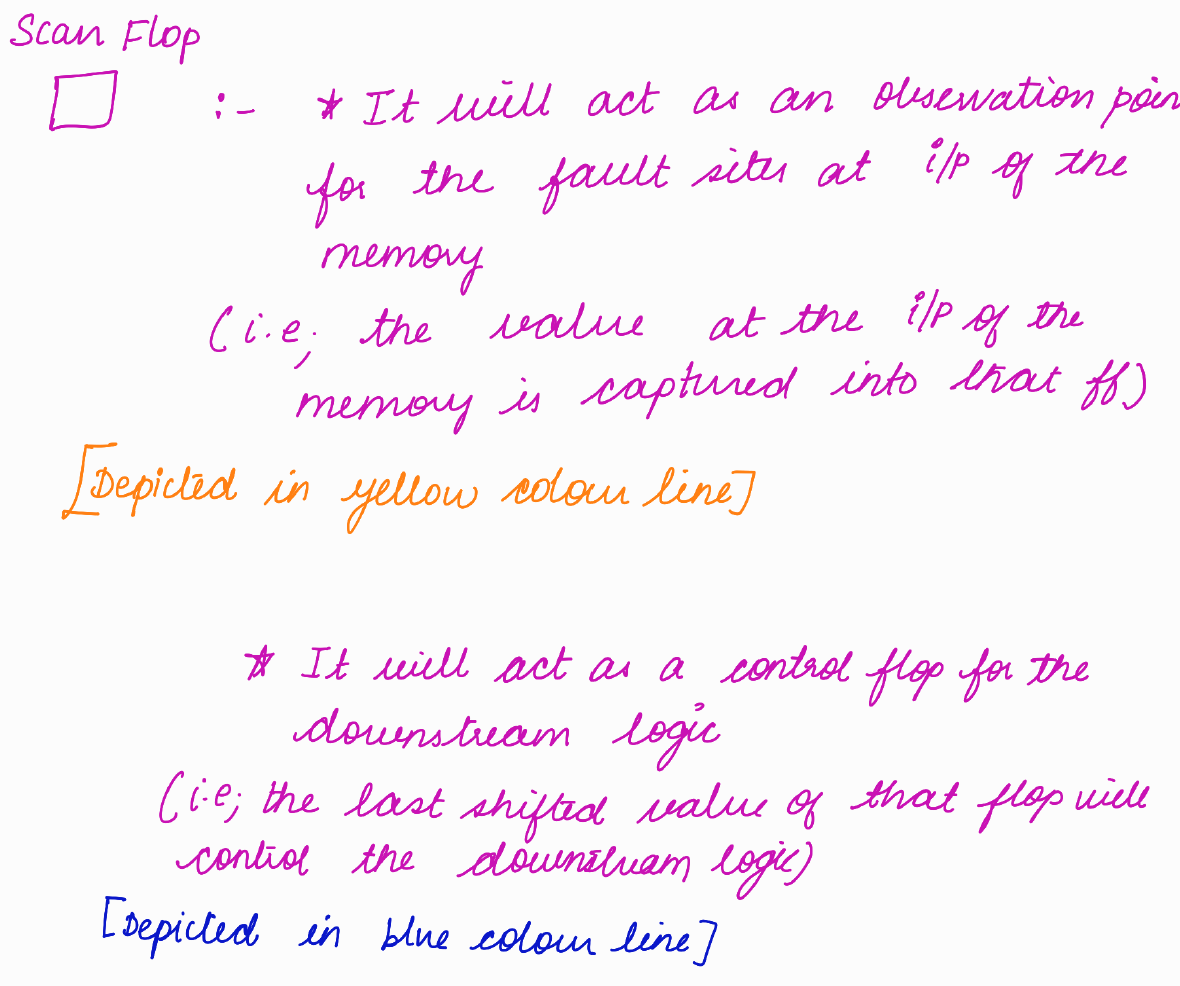 Scan Flop
:- * It will act as an observation poin
for the fault sites at i/p of the
memory
(i.e; the value at the i/p of the
memory is captured into that ff)
[Depicted in yellow colour line]
* It will act as a control flop for the
downstream logic
(i.e; the last shifted value of that flop will
control the downstream logic)
[Depicted in blue colour line]